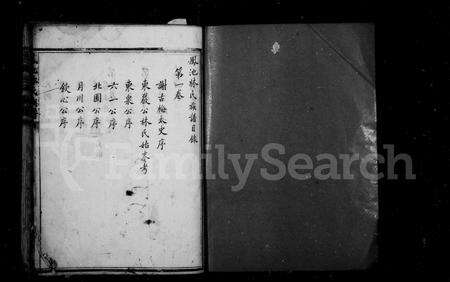 鳳池林氏族譜目錄
第一卷
謝古梅太史序
東嚴公林氏始末考
東泉公序
六一公序
北園公序
月川公序
欽心公序
FamilySearch